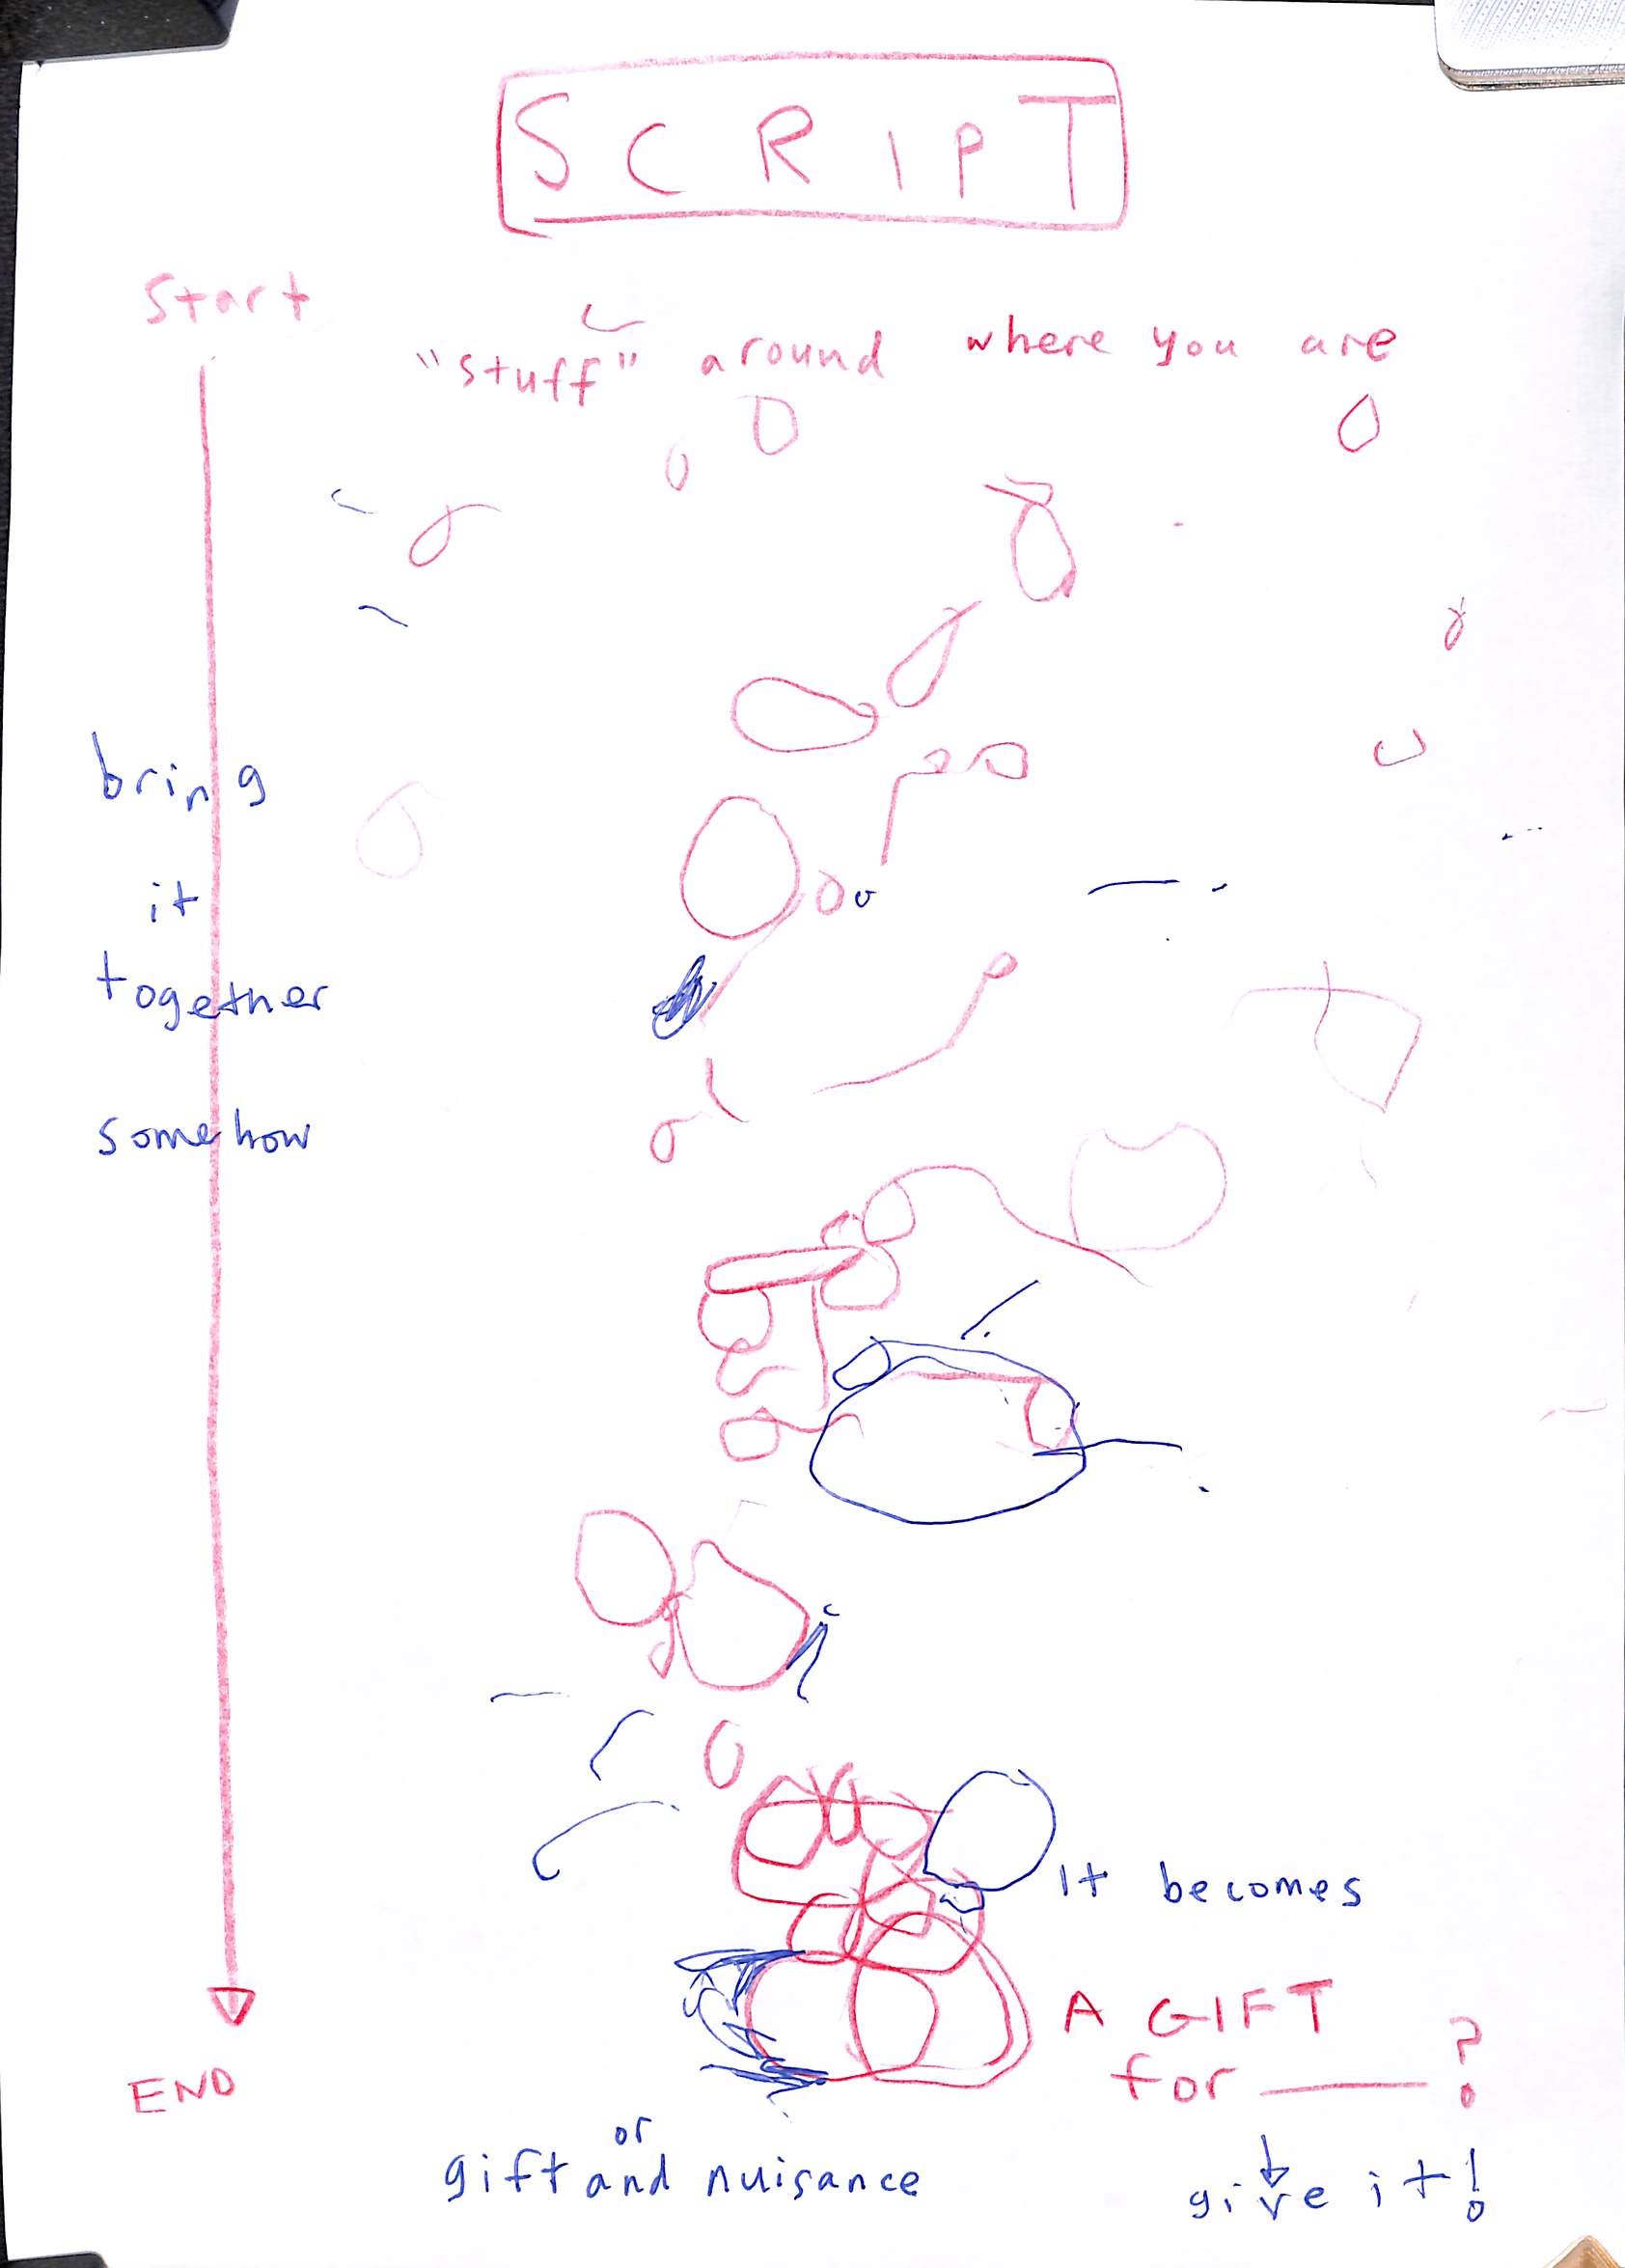 SCRIPT
Start
"stuff" around where you are
bring
it
together
somehow
It becomes
A GIFT
for ____ ?
END
or
gift and nuisance
give it!